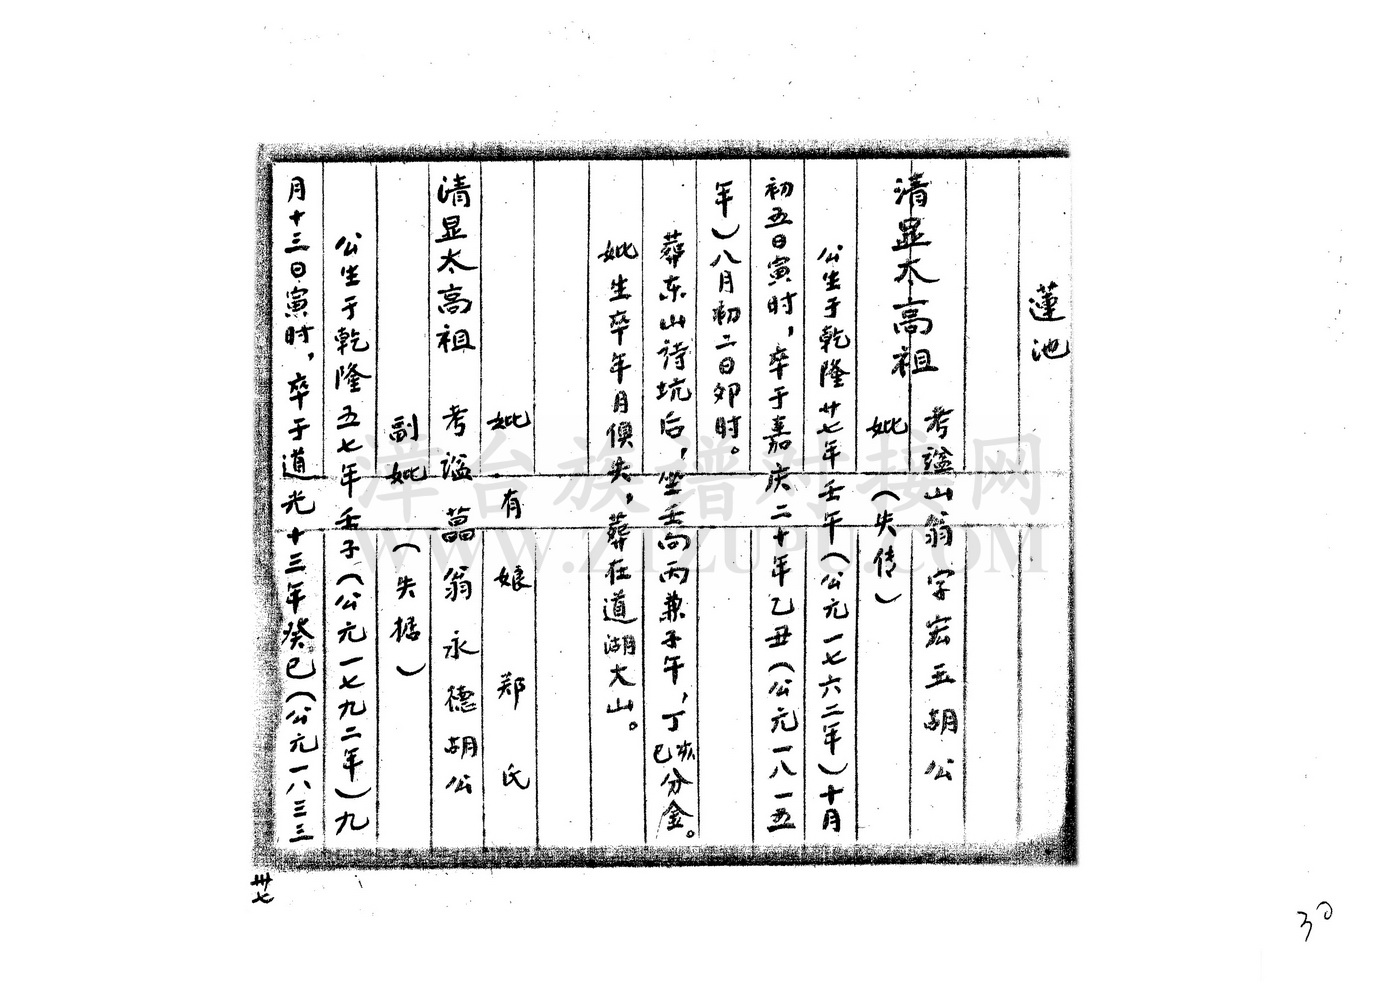 蓮池
清显太高祖
考谥山翁字宏玉胡公
妣(失传)
公生于乾隆廿七年壬午(公元一七六二年)十月
初五日寅时,卒于嘉庆二十年乙丑(公元一八一五
年)八月初二日卯时。
葬东山诗坑后,坐壬向丙兼子午,丁巳 分金。
妣生卒年月俱失,葬在道湖大山。
妣有娘郑氏
清显太高祖
考谥菖翁永德胡公
副妣(失据)
公生于乾隆五七年壬子(公元一七九二年)九
月十三日寅时,卒于道光十三年癸巳(公元一八三三
卅七
30
漳台族谱对接网
WWW.ZIZUPU.COM